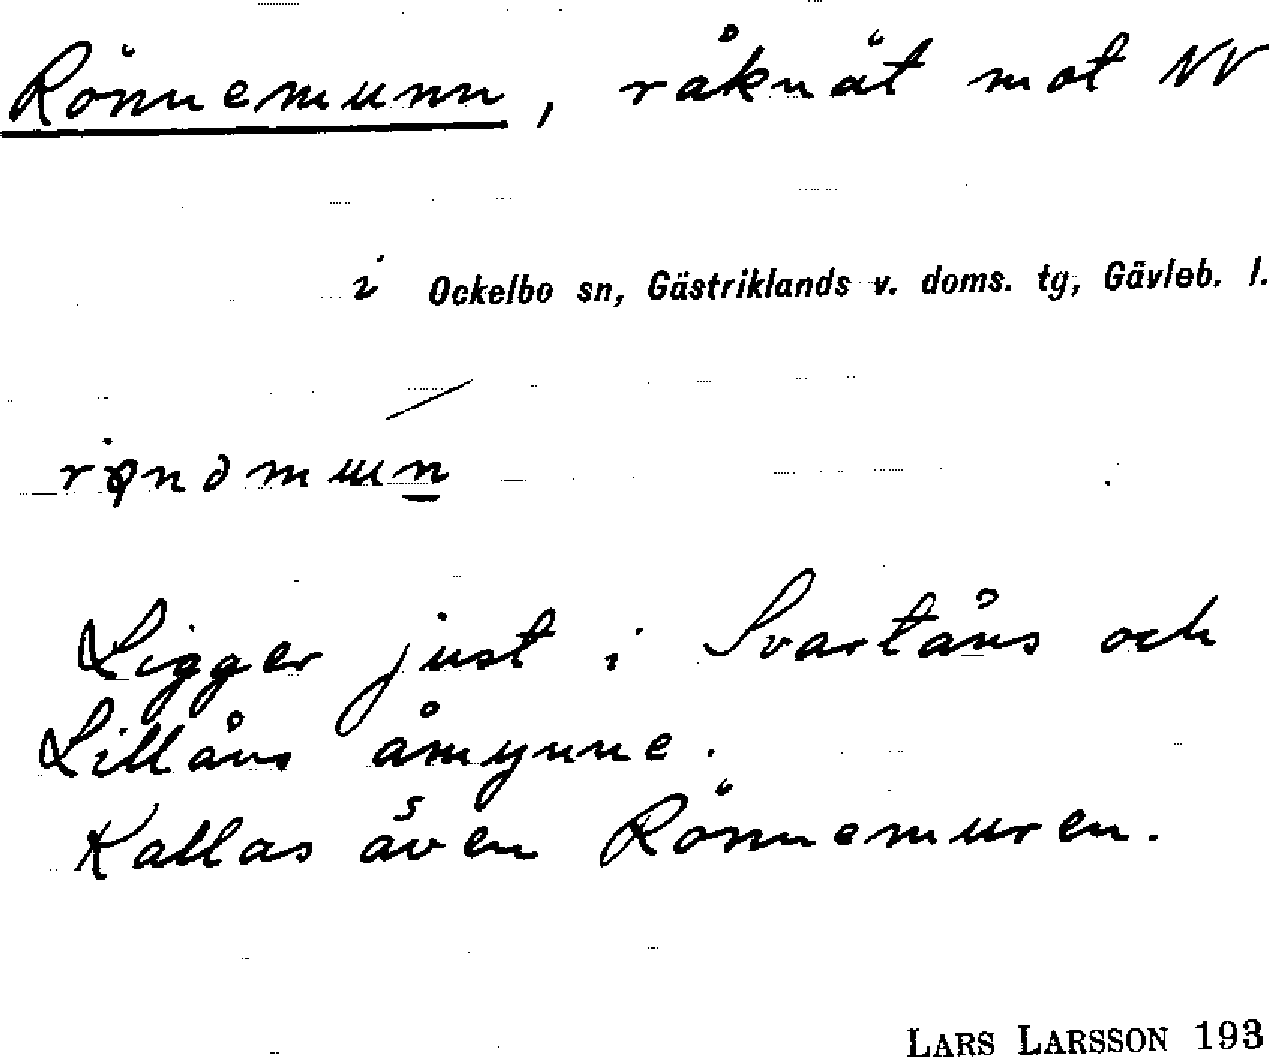 Rönnemunn, råknät mot NV
i Ockelbo sn, Gästriklands v. doms. tg, Gävleb. l.
Ligger just i Svartåns och
Lillåns åmynne.
Kallas även Rönnemuren.
LARS LARSSON 193